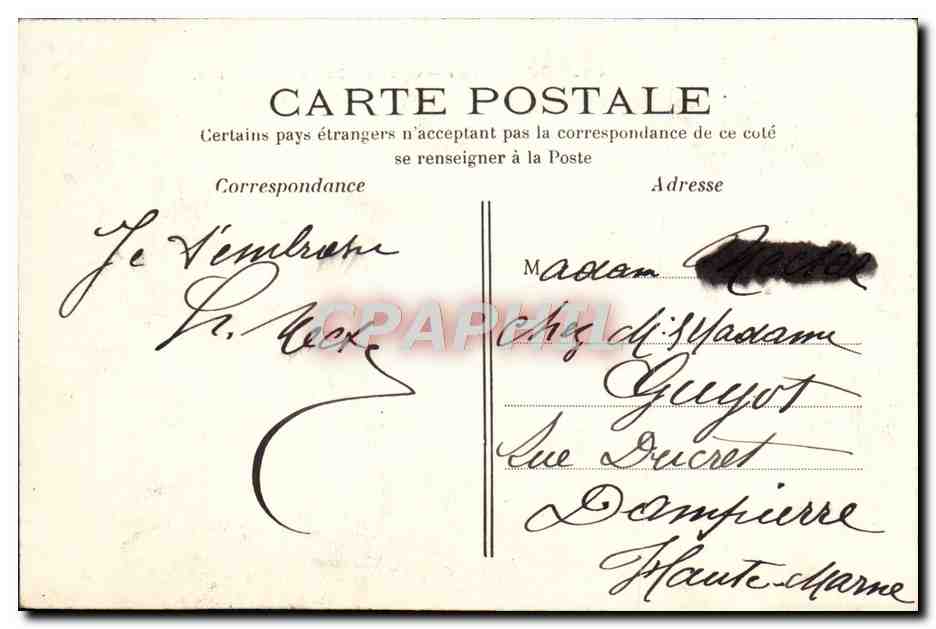 CARTE POSTALE
Certains pays étrangers n'acceptant pas la correspondance de ce coté
se renseigner à la Poste
Correspondance
Adresse
Je t'embrasse
Madam
CPAPHIL
chez M. & Madame
Guyot
Rue Ducret
Dampierre
Haute-Marne